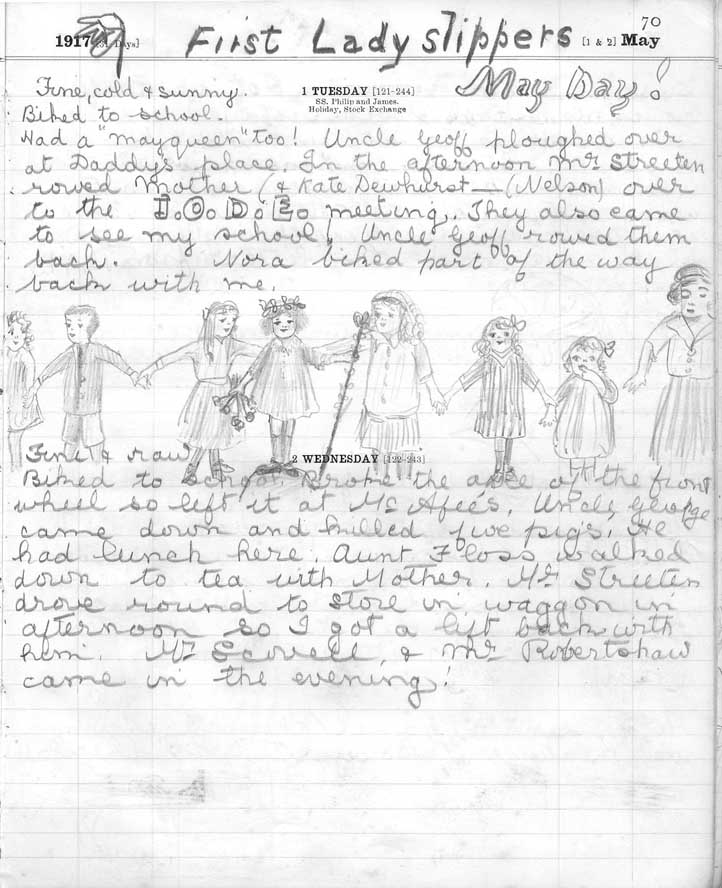 70
1917 [31 Days] First Lady slippers [1 & 2] May
Fine, cold & sunny. 1 TUESDAY [121-244] May Day!
SS. Philip and James.
Holiday, Stock Exchange
Biked to school.
Had a "mayqueen" too! Uncle Geoff ploughed over
at Daddys place. In the afternoon Mr. Streeten
rowed Mother (& Kate Dewhurst—(Nelson) over
to the I.O.D.E. meeting. They also came
to see my school! Uncle Geoff rowed them
back. Nora biked part of the way
back with me.
Fine & raw 2 WEDNESDAY [122-243]
Biked to school. Broke the axle of the front
wheel so left it at Mc Afee's. Uncle George
came down and killed five pigs. He
had lunch here. Aunt Floss walked
down to tea with Mother. Mr Streeten
drove round to store in waggon in
afternoon so I got a lift back with
him. Mr Scovell & Mr Robertshaw
came in the evening!